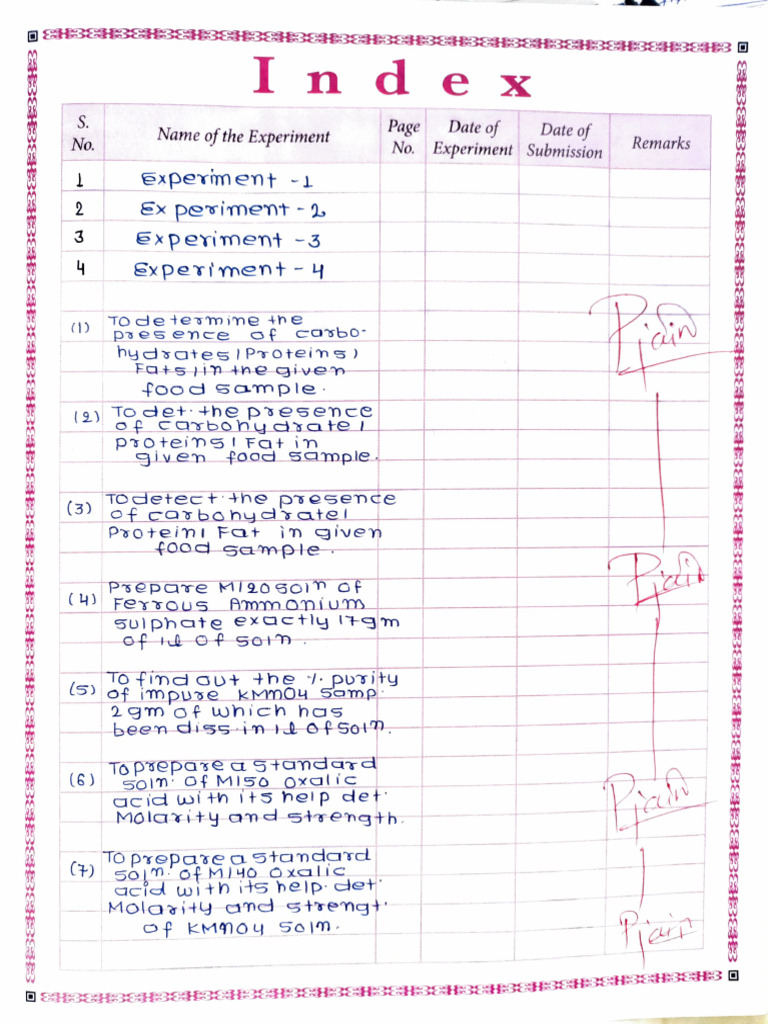 Index
S. No. Name of the Experiment Page No. Date of Experiment Date of Submission Remarks
1 Experiment - 1
2 Experiment - 2
3 Experiment - 3
4 Experiment - 4
(1) To determine the
presence of carbo-
hydrates/Proteins/
Fats/in the given
food sample.
(2) To det. the presence
of carbohydrate/
proteins/Fat in
given food sample.
(3) To detect the presence
of carbohydrate/
Protein/Fat in given
food sample.
(4) Prepare M/20 soln of
Ferrous Ammonium
sulphate exactly 17gm
of 1l of soln.
(5) To find out the % purity
of impure KMnO4 samp.
2gm of which has
been diss in 1l of soln.
(6) To prepare a standard
soln. of M/50 oxalic
acid with its help det.
Molarity and strength.
(7) To prepare a standard
soln. of M/40 oxalic
acid with its help. det.
Molarity and strengt.
of KMnO4 soln.
Pjain
Pjain
Pjain
Pjain